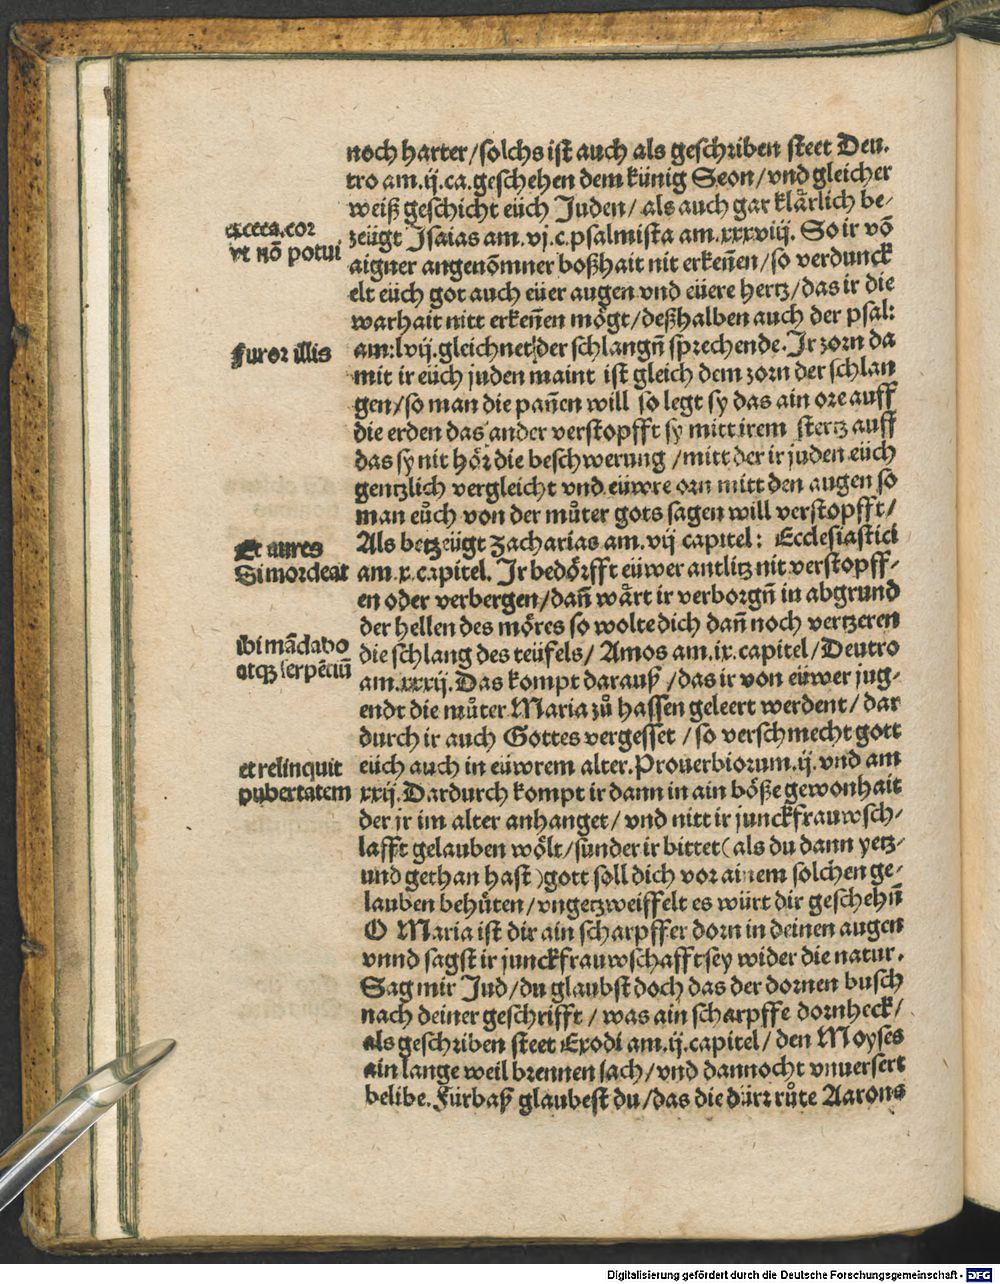 noch harter/solchs ist auch als geschriben steet Deu.
tro am.ij.ca.geschehen dem künig Seon/vnd gleicher
weiß geschicht eüch Juden/ als auch gar klårlich be-
zeügt Jsaias am.vj.c.psalmista am.xxxviij. So ir võ
aigner angenõmner boßhait nit erkeñen/so verdunck
elt eüch got auch eüer augen vnd eüere hertz/das ir die
warhait nitt erkeñen mögt/deßhalben auch der psal:
am:lvij.gleichnet der schlangñ sprechende.Jr zorn da
mit ir eüch juden maint ist gleich dem zorn der schlan
gen/so man die pañen will so legt sy das ain ore auff
die erden das ander verstopfft sy mitt irem stertz auff
das sy nit hör die beschwerung /mitt der ir juden eüch
gentzlich vergleicht vnd eüwre orn mitt den augen so
man eůch von der můter gots sagen will verstopfft/
Als betzeügt Zacharias am.vij capitel: Ecclesiastici
am.x.capitel. Jr bedörfft eüwer antlitz nit verstopff-
en oder verbergen/dañ wårt ir verborgñ in abgrund
der hellen des möres so wolte dich dañ noch vertzeren
die schlang des teüfels/ Amos am.ix.capitel/Deutro
am.xxxij.Das kompt darauß /das ir von eüwer jug-
endt die můter Maria zů hassen geleert werdent/dar
durch ir auch Gottes vergesset /so verschmecht gott
eüch auch in eüwrem alter.Prouerbiorum.ij.vnd am
xxij.Dardurch kompt ir dann in ain böße gewonhait
der jr im alter anhanget/ vnd nitt ir junckfrauwsch-
lafft gelauben wölt/sunder ir bittet(als du dann yetz-
und gethan hast)gott soll dich vor ainem solchen ge-
lauben behůten/vngetzweiffelt es würt dir geschehñ
O Maria ist dir ain scharpffer dorn in deinen augen
vnnd sagst ir junckfrauwschafft sey wider die natur.
Sag mir Jud/du glaubst doch das der dornen busch
nach deiner geschrifft/ was ain scharpffe dornheck/
als geschriben steet Exodi am.ij.capitel/den Moyses
ain lange weil brennen sach/vnd dannocht vnuersert
belibe.Fürbaß glaubest du/das die dürr růte Aarons
exceca.cor
vt nõ potui
furor illis
Et aures
Si mordeat
ibi mãdabo
atqz serpẽtiũ
et relinquit
pubertatem
Digitalisierung gefördert durch die Deutsche Forschungsgemeinschaft - DFG